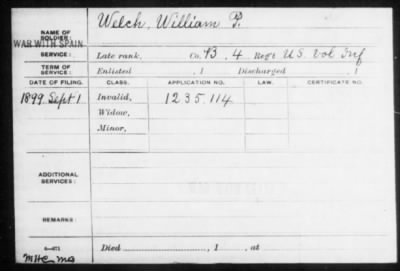 NAME OF SOLDIER: Welch, William P.
WAR WITH SPAIN
SERVICE: Late rank, Co. B, 4 Reg't U.S. Vol Inf
TERM OF SERVICE: Enlisted , 1 Discharged , 1
DATE OF FILING. CLASS. APPLICATION NO. LAW. CERTIFICATE NO.
1899 Sept 1 Invalid, 1235.114
Widow,
Minor,
ADDITIONAL SERVICES:
REMARKS:
Died , 1 , at